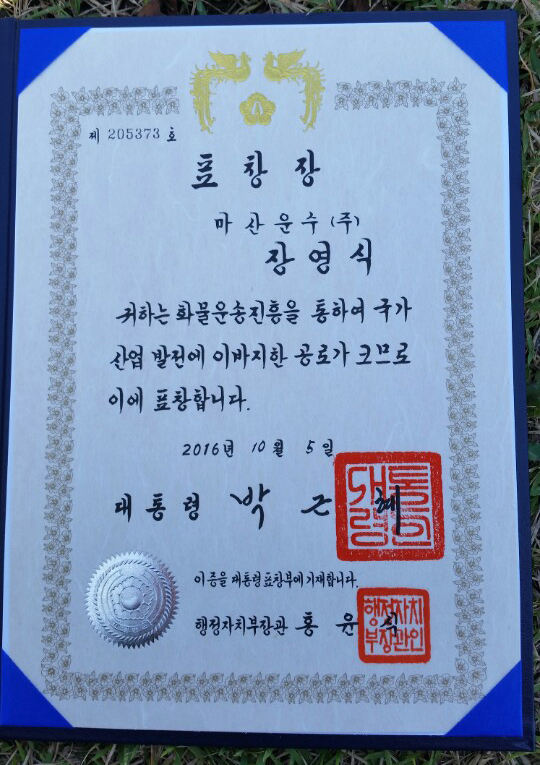 제 205373 호
표창장
마산운수(주)
장영식
귀하는 화물운송진흥을 통하여 국가
산업 발전에 이바지한 공로가 크므로
이에 표창합니다.
2016년 10월 5일
대통령 박근혜
대통령인
이 증을 대통령표창부에 기재합니다.
행정자치부장관 홍윤식
행정자치
부장관인